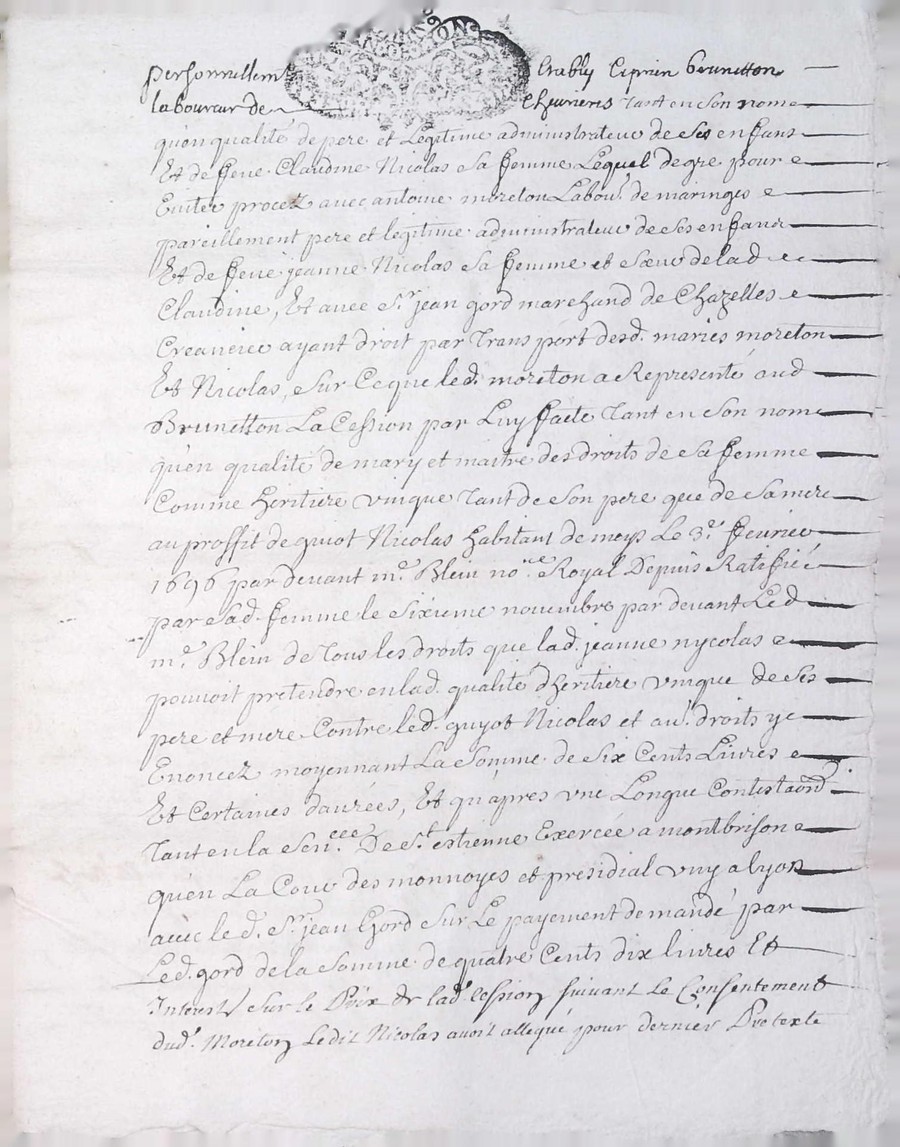 personnellemt Erably Ciprin brunetton
laboureur de Cheuneris Tant en son nom
quen qualité de pere et Legitime administrateur de ses enfans
Et de feue Claudine Nicolas sa femme Lequel de gre pour
Euiter procez auec antoine moreton Labour. de maringes
pareillement pere et legitime administrateur de ses enfans
Et de feue jeanne Nicolas sa femme et sœur de lad
Claudine, Et auec Sr. jean gord marchand de Chazelles
Creancier ayant droit par Transport desd. mariés moreton
Et Nicolas, sur Ce que led. moreton a Representé aud
Brunetton La Cession par Luy faite Tant en son nom
qu'en qualité de mary et maitre des droits de sa femme
Comme heritiere vnique Tant de son pere que de sa mere
au proffit de guiot Nicolas habitant de meys Le 3e. feurier
1696 par deuant me. Blein nore. Royal Depuis Ratifiée
par sad. femme le sixieme nouembre par deuant Led
me. Blein de Tous les droits que lad. jeanne nycolas
pouuoit pretendre en lad. qualité d'heritiere vnique de ses
pere et mere Contre led. guyot Nicolas et au. droits y
Enoncez moyennant La somme de six Cents Liures
Et Certaines danrées, Et qu'apres vne Longue Contestaon
Tant en la Senccée De St. estienne Exercée a montbrison
qu'en La Cour des monnoyes et presidial vny a lyon
auec led. Sr. jean Gord sur Le payement demandé par
Led. gord de la somme de quatre Cents dix liures Et
Interest sur le Prix de lad. Cession suiuant Le Consentement
dud. Moreton Ledit Nicolas auoit allegué pour dernier Pretexte